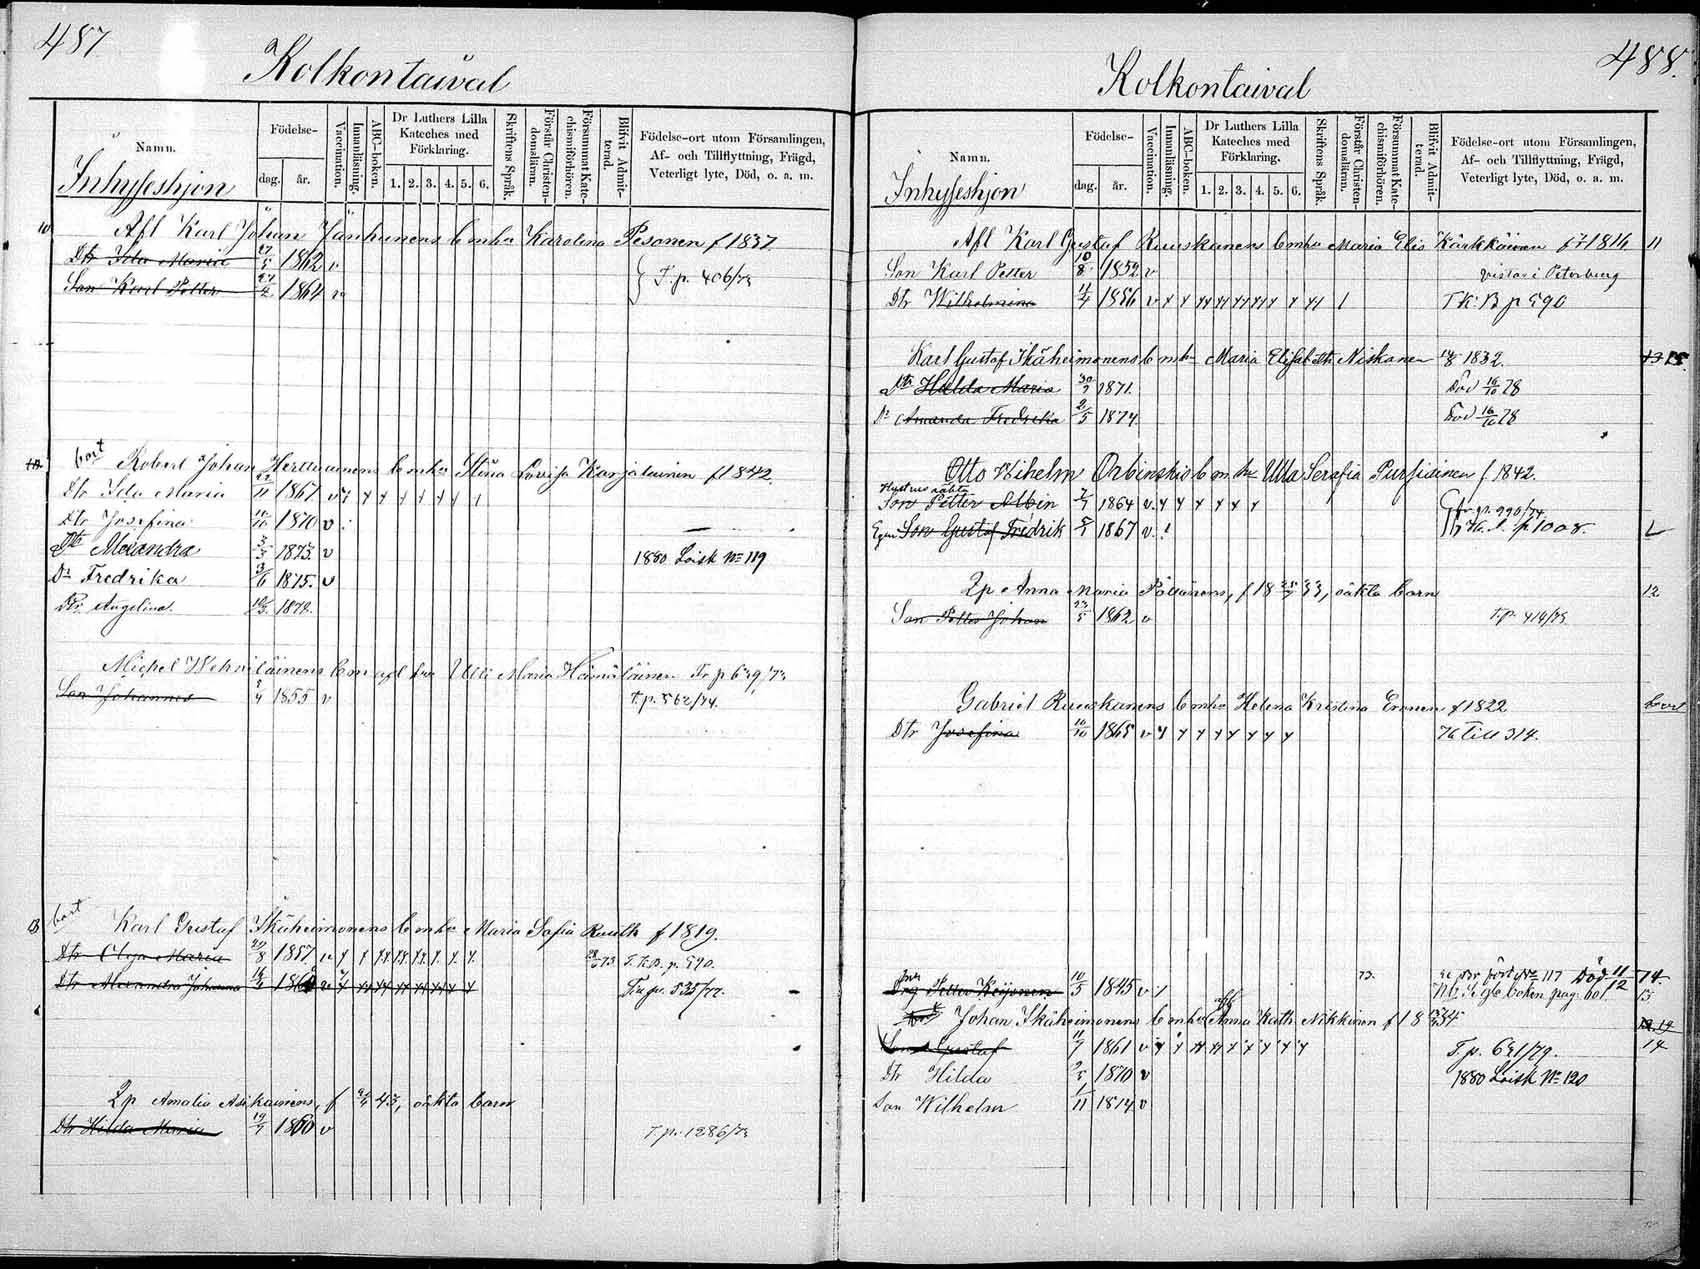 487.
Kolkontaival
Namn.
Födelse-
dag.
år.
Vaccination.
Innanläsning.
ABC-boken.
Dr Luthers Lilla Kateches med Förklaring.
1. 2. 3. 4. 5. 6.
Skriftens Språk.
Förstår Christendomsläran.
Försummat Katechismiförhören.
Blifvit Admitterad.
Födelse-ort utom Församlingen, Af- och Tillflyttning, Frägd, Veterligt lyte, Död, o. a. m.
Inhysehjon
10 Afl Karl Johan Jänhunens b mhu Karolina Pesonen f 1837
Dtr Ida Maria 27/5 1862 v
Son Karl Petter 27/2 1864 v
T. p. 406/73
bort
Robert Johan Herttuainens b mhu Stina Lovisa Karjalainen f 1842.
Dtr Ida Maria 22/11 1867 v
Dtr Josefina 1870 v
Dtr Alexandra 1873. v 1880 Loisk No 119
Dr Fredrika 13/6 1875. v
Dtr Angelina.
Michel Wehviläinens b m afl hu Ulla Maria Hämäläinen Tr p 639/73
Son Johannes 1855 v T. p. 562/74.
bort
13 Karl Gustaf Ikäheimonens b mhu Maria Sofia Ruuth f 1819.
Dtr Maria 29/8 1857 T. K. B. p. 590.
Dtr Alexandra Johanna 16/4 186 535/77.
Lp Amalia Asikainens, f 43, oäkta barn
Dtr Hilda Maria 19/7 1860 v T. p. 1286/73
488.
Kolkontaival
Namn.
Födelse-
dag.
år.
Vaccination.
Innanläsning.
ABC-boken.
Dr Luthers Lilla Kateches med Förklaring.
1. 2. 3. 4. 5. 6.
Skriftens Språk.
Förstår Christendomsläran.
Försummat Katechismiförhören.
Blifvit Admitterad.
Födelse-ort utom Församlingen, Af- och Tillflyttning, Frägd, Veterligt lyte, Död, o. a. m.
Inhysehjon
Afl Karl Gustaf Ruuskanens b mhu Maria Elis Kärkkäinen f 1816 11
Son Karl Petter 10/8 1852 v vistas i Peterburg
Dtr Wilhelmina 4/4 1856 v T K. B p 590
Karl Gustaf Ikäheimonens b mhu Maria Elisabeth Niskanen 1832.
Dtr Hulda Maria 1871. Död 16/10 78
Dr Amanda Fredrika 2/5 1874. Död 16/10 78
Otto Wihelm Orbinskis b m hu Ulla Serafia Pursiainen f. 1842.
Hustrus oäkta
Son Petter Albin 1864 v. 990/74
Egen Son Gustaf Fredrik 1867 v. p. 1008.
Lp Anna Maria Pöllänens, f 18 33, oäkta barn 12
Son Petter Johan 23/5 1862 v T. p. 414/73
Gabriel Ruuskanens b mhu Helena Kristina Eronen f 1822 bort
Dtr Josefina 16/10 1865 v till 314.
Drg Petter Keijonen 10/5 1845 v 73. No 117 Död 11/12 14.
boken pag: 601. 13
Johan Ikäheimonens b mhu Anna Kath. Nikkinen f 18 34
Son Gustaf 11/7 1861 v T. p. 631/79. 14
Dtr Hilda 1870 v 1880 Loisk No 120
Son Wilhelm 1/11 1874 v